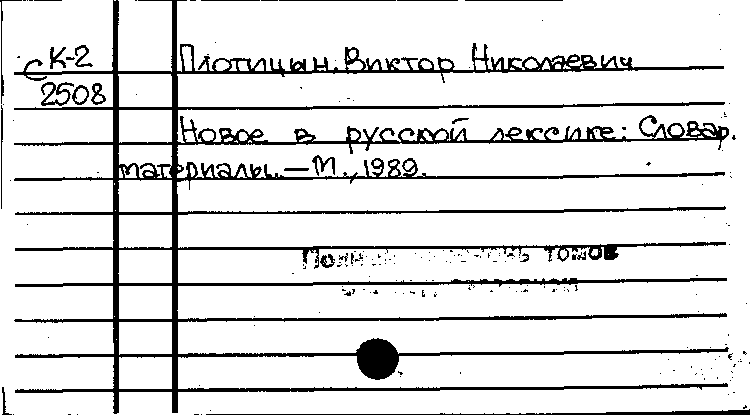 С К-2
2508
Плотицын Виктор Николаевич
Новое в русской лексике: Словар.
материалы.—М., 1989.
томов